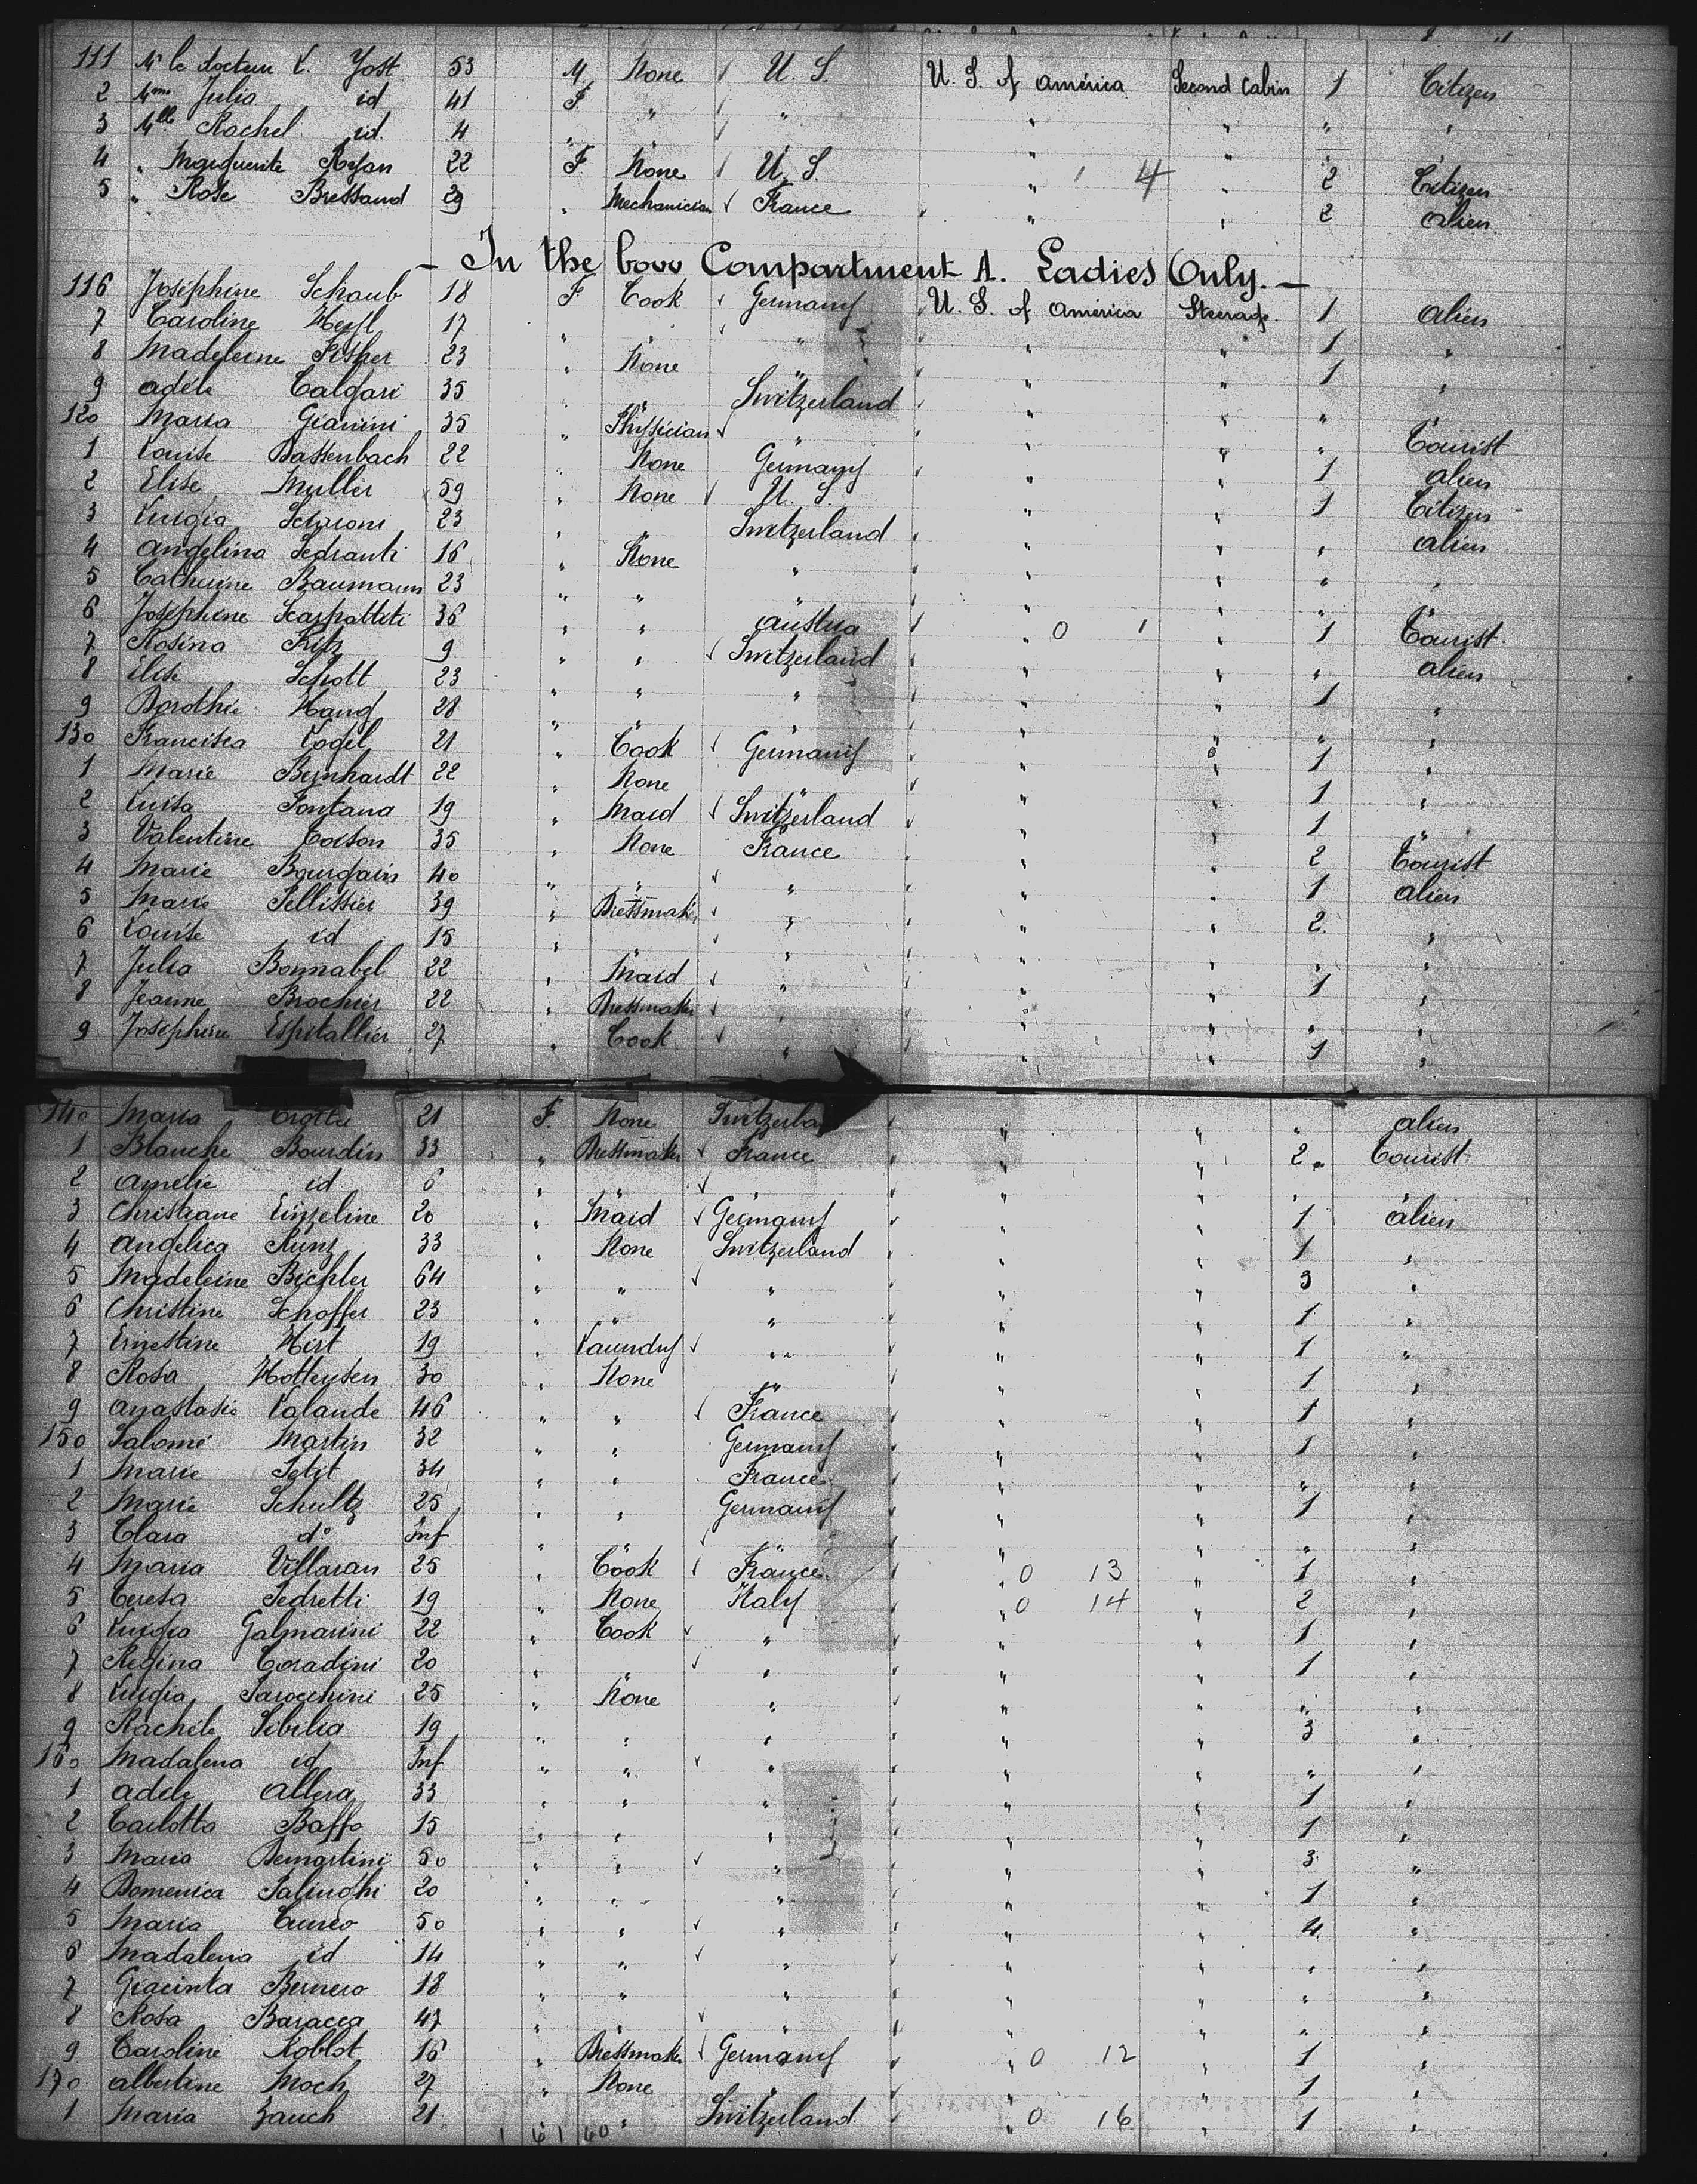 111 Mr le docteur L. Yost 53 M None U. S. U. S. of América Second Cabin 1 Citizen
2 Mme Julia id 41 F " " " " " "
3 Mlle Rachel id. 4 " " " "
4 " Marguerite Ryan 22 F None U. S. " 1 4 " 2 Citizen
5 " Rose Bressand 29 " Mechanician France " " 2 alien
- In the bow Compartment A. Ladies Only. -
116 Joséphine Schaub 18 F Cook Germany U. S. of América Steerage 1 alien
7 Caroline 17 " " " " " 1 "
8 Madeleine Fisher 23 " None " " " 1 "
9 adèle Calgari 35 " " Switzerland " " "
120 Maria Gianini 35 " Physician " " " " Tourist
1 Louise Bassenbach 22 " None Germany " " 1 alien
2 Elise Muller 59 " None U. S " " 1 Citizen
3 Luigia Scaroni 23 " " Switzerland " " " alien
4 angelina Pedranti 16 " None " " " " "
5 Catherine Baumann 23 " " " " " "
6 Joséphine Scarpatteti 36 " " austria " 0 1 " 1 Tourist
7 Rosina 9 " " Switzerland " " " alien
8 Elise Schott 23 " " " " " 1 "
9 Dorothée Haug 28 " " " " " " "
130 Francisca Vogel 21 " Cook Germany " " 1 "
1 Marie Bernhardt 22 " None " " " 1 "
2 Luisa Fontana 19 " Maid Switzerland " " 1 "
3 Valentine Corson 35 " None France " " 2 Tourist
4 Marie Bourgain 40 " " " " " 1 alien
5 Marie Pellissier 39 " Dressmaker " " " 2 "
6 Louise id 15 " " " " " " "
7 Julia Bonnabel 22 " Maid " " " 1 "
8 Jeanne Brochier 22 " Dressmaker " " " " "
9 Joséphine Espitallier 27 " Cook " " " 1 "
140 Maria 21 F. None " " " alien
1 Blanche Bourdin 33 " Dressmaker France " " 2 " Tourist
2 amelie id 6 " " " " " " "
3 Christiane Einzeline 20 " Maid Germany " " 1 alien
4 angelica Kunz 33 " None Switzerland " " 1 "
5 Madeleine Bichler 64 " " " " " 3 "
6 Christine Schoffer 23 " " " " " 1 "
7 Ernestine Hirt 19 " Laundry " " " 1 "
8 Rosa Hottensen 30 " None " " " 1 "
9 anastasie Lalande 46 " " France " " 1 "
150 Salomé Martin 32 " " Germany " " 1 "
1 Marie Petit 34 " " France " " " "
2 Marie Schultz 25 " " Germany " " 1 "
3 Clara do Inf " " " " " " "
4 Maria Villaran 25 " Cook France " 0 13 " 1 "
5 Teresa Pedretti 19 " None Italy " 0 14 " 2 "
6 Luigia Galmarini 22 " Cook " " " 1 "
7 Regina Coradini 20 " " " " " 1 "
8 Luigia Sarocchini 25 " None " " " " "
9 Rachele Sibilia 19 " " " " " 3 "
160 Madalena id Inf " " " " " " "
1 adele allera 33 " " " " " 1 "
2 Carlotta Baffo 15 " " " " " 1 "
3 Maria Demartini 50 " " " " " 3 "
4 Domenica 20 " " " " " 1 "
5 Maria Cuneo 50 " " " " " 4 "
6 Madalena id 14 " " " " " " "
7 Giacinta Bernero 18 " " " " " " "
8 Rosa Baracca 47 " " " " " " "
9 Caroline Koblot 16 " Dressmaker Germany " 0 12 " 1 "
170 albertine Moch 27 " None " " " 1 "
1 Maria Zauch 21 " " Switzerland " 0 16 " 1 "